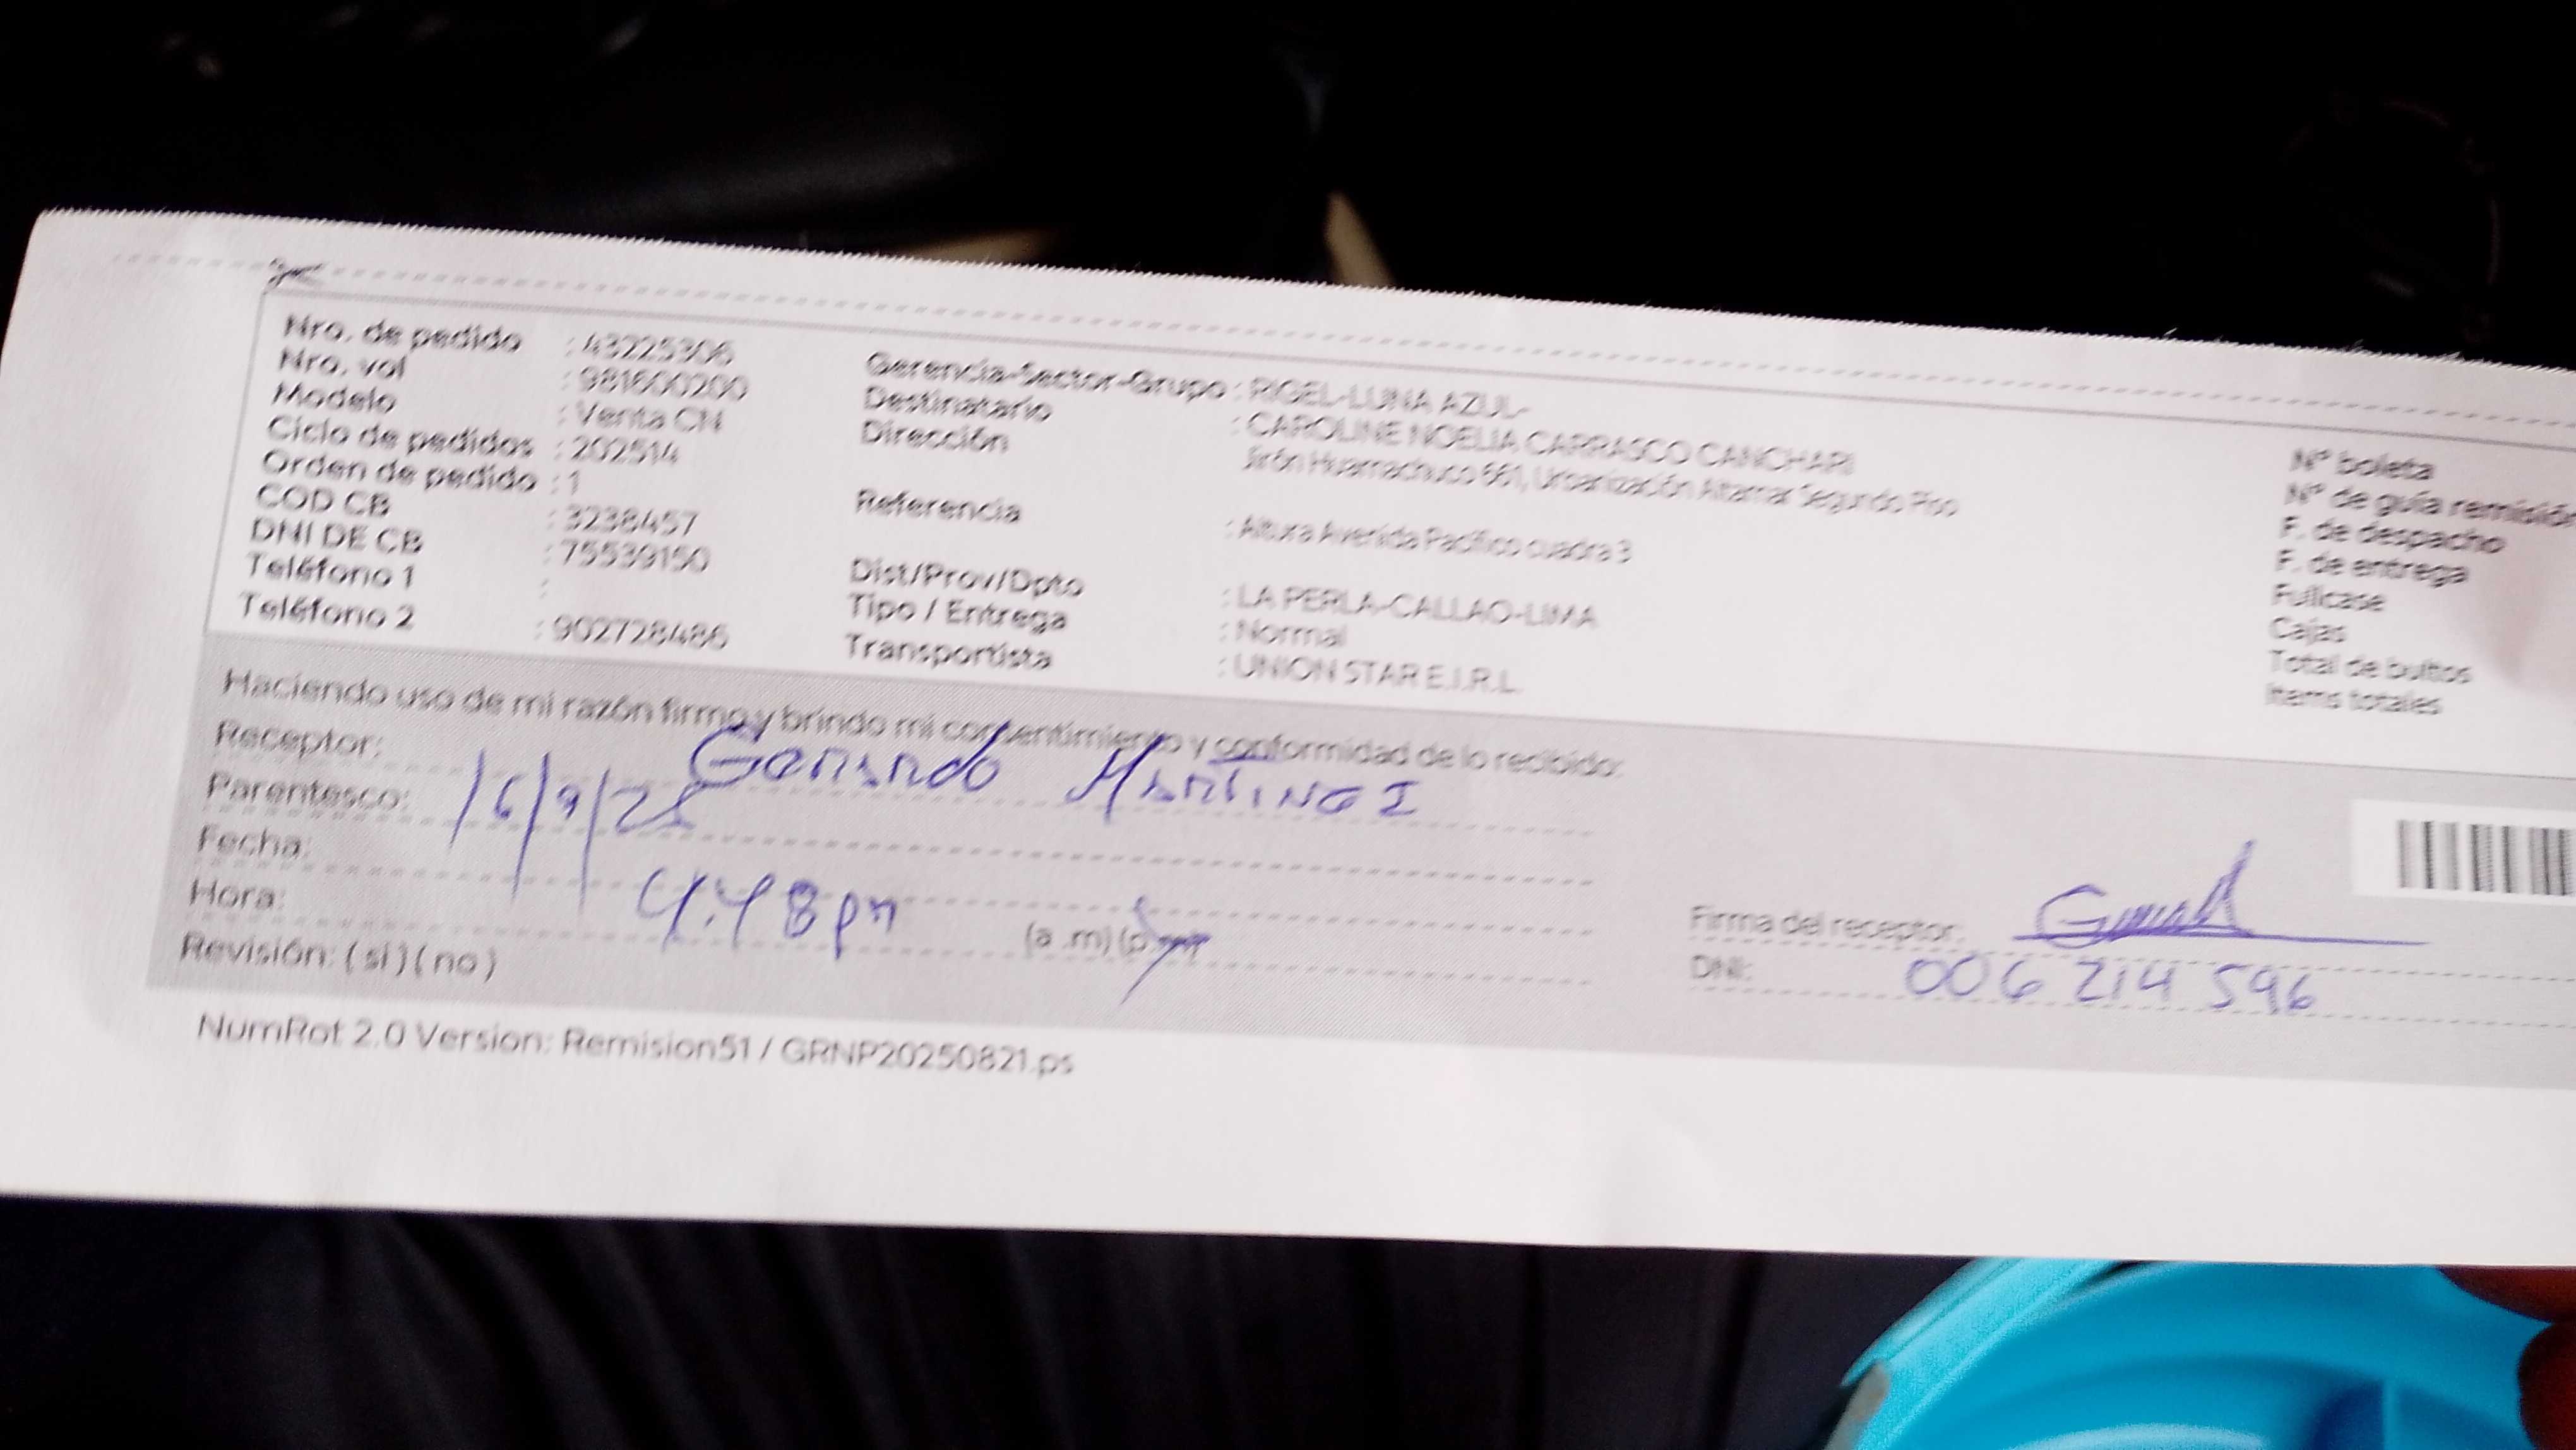 Nro. de pedido : 43225306
Nro. vol : 981600200
Modelo : Venta CN
Ciclo de pedidos : 202514
Orden de pedido : 1
COD CB : 3238457
DNI DE CB : 75539150
Teléfono 1 :
Teléfono 2 : 902728486
Gerencia-Sector-Grupo : RIGEL-LUNA AZUL-
Destinatario : CAROLINE NOELIA CARRASCO CANCHARI
Dirección : Jirón Huamachuco 661, Urbanización Altamar Segundo Piso
Referencia : Altura Avenida Pacífico cuadra 3
Dist/Prov/Dpto : LA PERLA-CALLAO-LIMA
Tipo / Entrega : Normal
Transportista : UNION STAR E.I.R.L.
Nº boleta
Nº de guía remisión
F. de despacho
F. de entrega
Fullcase
Cajas
Total de bultos
Items totales
Haciendo uso de mi razón firmo y brindo mi consentimiento y conformidad de lo recibido:
Receptor: Gerardo Martinez
Parentesco:
Fecha: 16/9/25
Hora: 4:48 pm (a .m) (p.m)
Revisión: ( si ) ( no )
Firma del receptor:
DNI: 006 214 596
NumRot 2.0 Version: Remision51 / GRNP20250821.ps